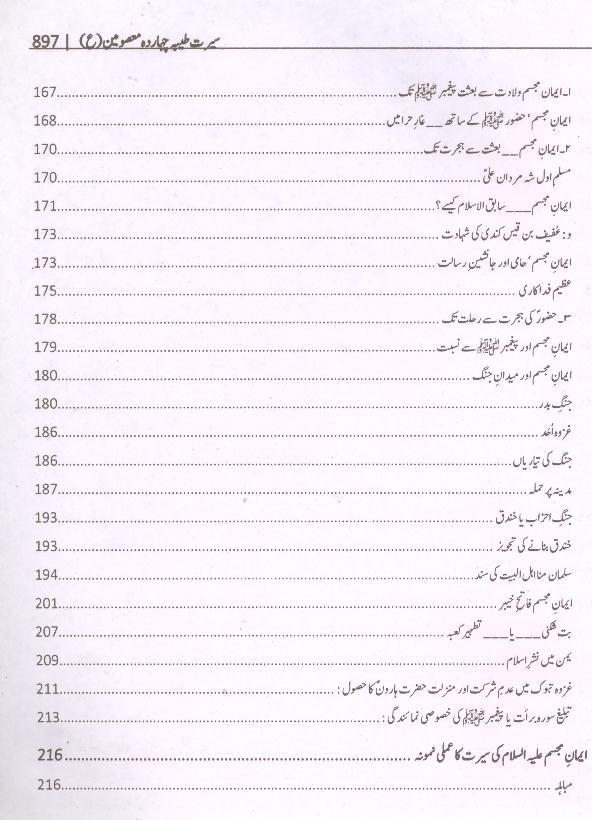 سیرت طیبہ چہاردہ معصومین(ع) | 897
۱۔ایمان مجسم ولادت سے بعثت پیغمبر ﷺ تک 167
ایمانِ مجسم' حضور ﷺ کے ساتھ __ غارِ حرا میں 168
۲۔ایمانِ مجسم __ بعثت سے ہجرت تک 170
مسلم اول شہ مردان علیؑ 170
ایمانِ مجسم ___ سابق الاسلام کیسے؟ 171
و: عفیف بن قیس کندی کی شہادت 173
ایمانِ مجسم' حامی اور جانشینِ رسالت 173
عظیم فداکاری 175
۳۔حضورؐ کی ہجرت سے رحلت تک 178
ایمانِ مجسم اور پیغمبر ﷺ سے نسبت 179
ایمانِ مجسم اور میدانِ جنگ 180
جنگِ بدر 180
غزوہ اُحد 186
جنگ کی تیاریاں 186
مدینہ پر حملہ 187
جنگِ احزاب یا خندق 193
خندق بنانے کی تجویز 193
سلمان منا اہل البیت کی سند 194
ایمانِ مجسم فاتح خیبر 201
بت شکنی ___ یا ___ تطہیر کعبہ 207
یمن میں نشرِ اسلام 209
غزوہ تبوک میں عدمِ شرکت اور منزلت حضرت ہارونؑ کا حصول: 211
تبلیغ سورہ برأت یا پیغمبر ﷺ کی خصوصی نمائندگی: 213
ایمانِ مجسم علیہ السلام کی سیرت کا عملی نمونہ 216
مباہلہ 216